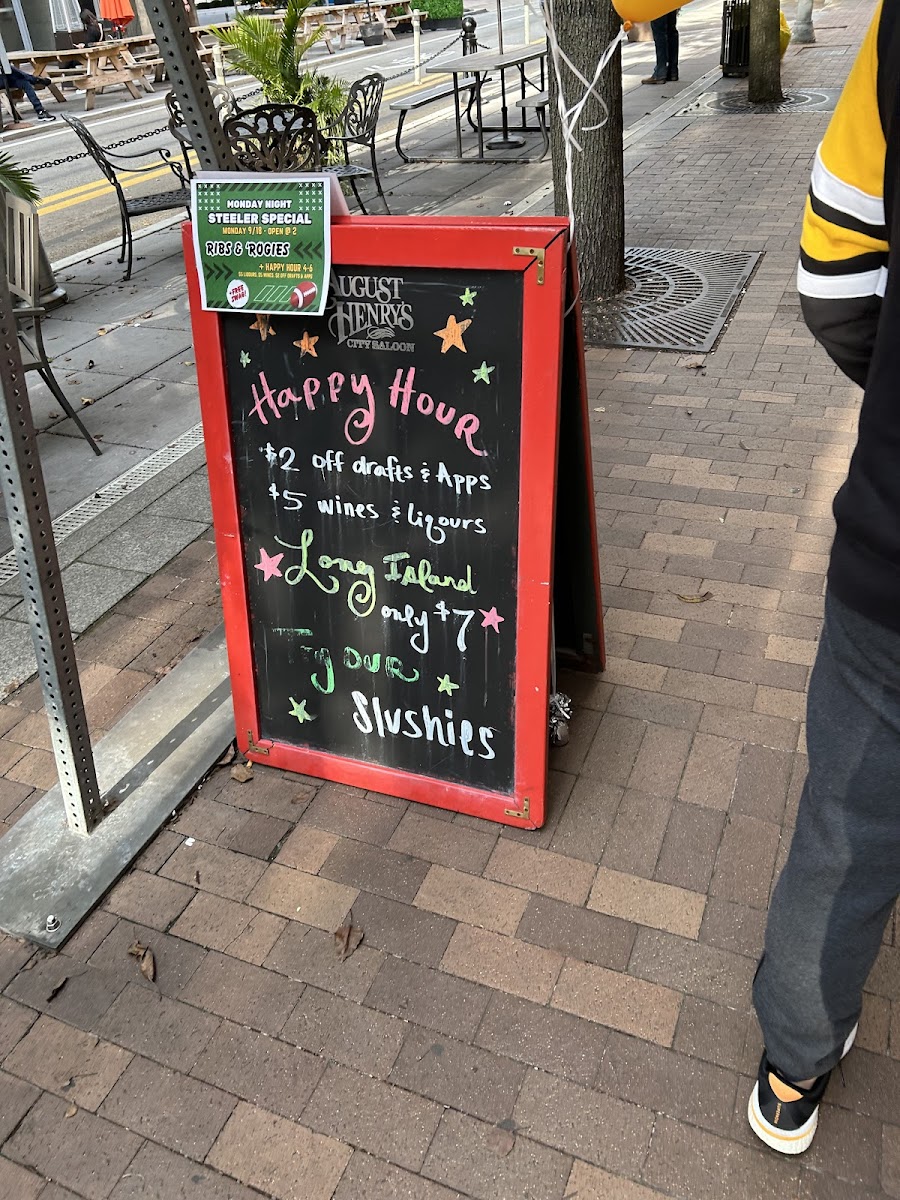 MONDAY NIGHT
STEELER SPECIAL
MONDAY 9/18 - OPEN @ 2
RIBS & 'ROGIES
+ HAPPY HOUR 4-6
$5 LIQUORS, $5 WINES, $2 OFF DRAFTS & APPS
+FREE
SWAG!
AUGUST
HENRY'S
CITY SALOON
Happy Hour
$2 off drafts & Apps
$5 wines & liqours
Long Island
only $7
Try our
Slushies